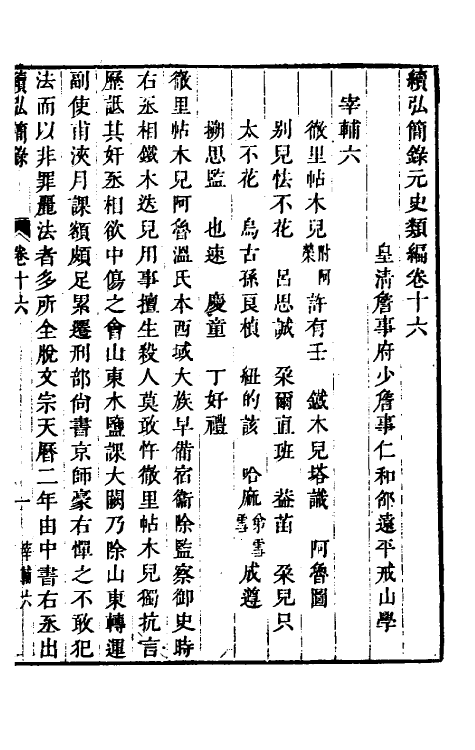 續弘簡錄元史類編卷十六
皇清詹事府少詹事仁和邵遠平戒山學
宰輔六
徹里帖木兒附阿榮 許有壬 鐵木兒塔識 阿魯圖
別兒怯不花 呂思誠 朶爾直班 葢苗 朶兒只
太不花 烏古孫良楨 紐的該 哈麻弟雪雪 成遵
搠思監 也速 慶童 丁好禮
徹里帖木兒阿魯溫氏本西域大族早備宿衞除監察御史時
右丞相鐵木迭兒用事擅生殺人莫敢忤徹里帖木兒獨抗言
歷詆其奸丞相欲中傷之會山東水鹽課大闕乃除山東轉運
副使甫浹月課額頗足累遷刑部尙書京師豪右憚之不敢犯
法而以非罪麗法者多所全脫文宗天曆二年由中書右丞出
續弘簡錄 卷十六 一 宰輔六